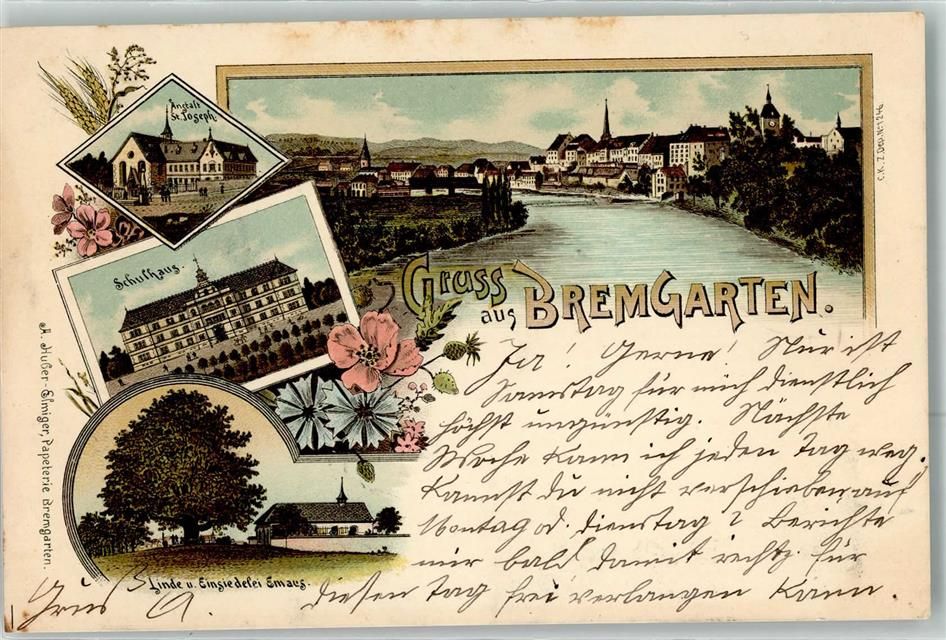 Anstalt
St. Joseph.
Schulhaus.
Linde u. Einsiedelei Emaus.
Gruss
aus BREMGARTEN.
C.K.Z. Dep. No. 1246
A. Hußer-Elmiger, Papeterie Bremgarten.
Ja! Gerne! Nur ist
Samstag für mich dienstlich
höchst ungünstig. Nächste
Woche kann ich jeden Tag weg.
Kannst Du nicht verschieben auf
Montag od. Dienstag? Berichte
mir bald damit rechtz. für
diesen Tag frei verlangen kann.
Gruss